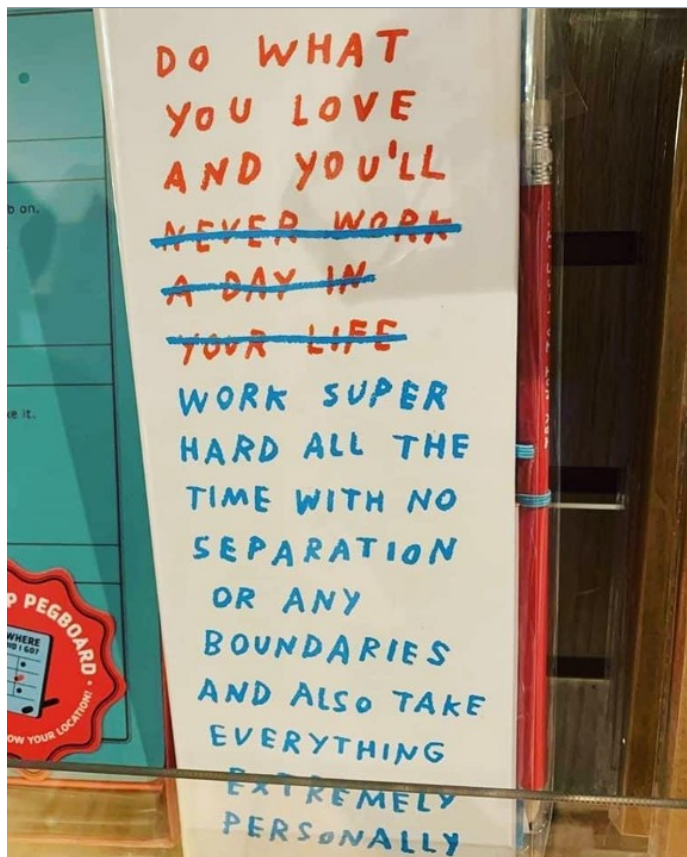 DO WHAT
YOU LOVE
AND YOU'LL
NEVER WORK
A DAY IN
YOUR LIFE
WORK SUPER
HARD ALL THE
TIME WITH NO
SEPARATION
OR ANY
BOUNDARIES
AND ALSO TAKE
EVERYTHING
EXTREMELY
PERSONALLY
on.
it.
PEGBOARD
WHERE
DID I GO?
YOUR LOCATION!
TRY NOT TO